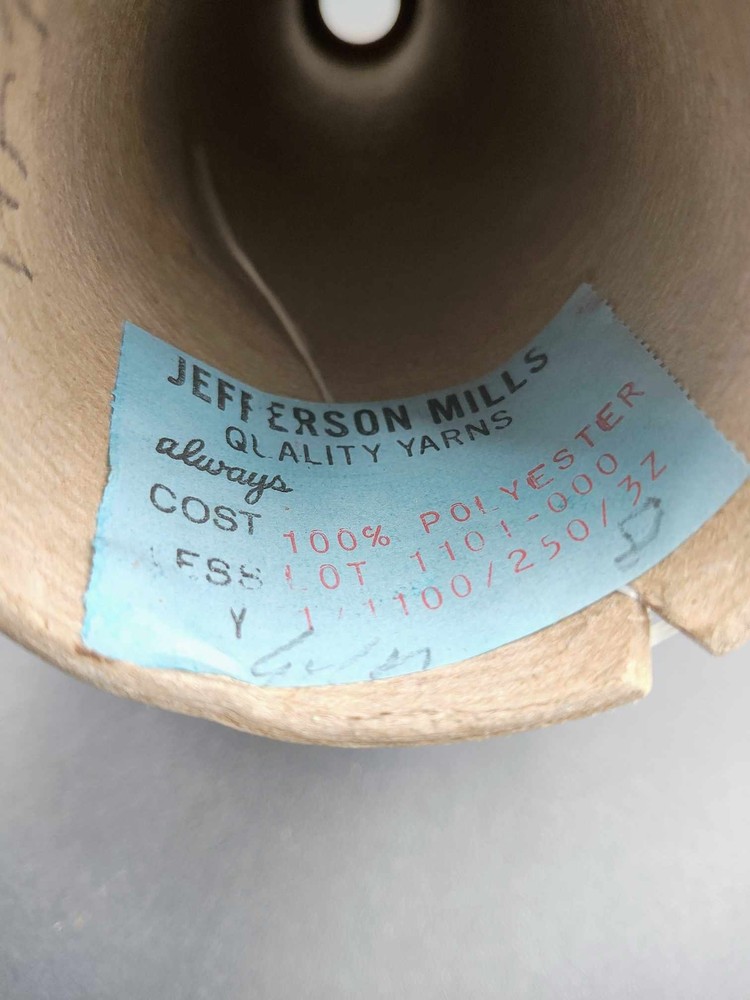 JEFFERSON MILLS
QUALITY YARNS
always
COST 100% POLYESTER
LESS LOT 1101-000
Y 1/1100/250/3Z